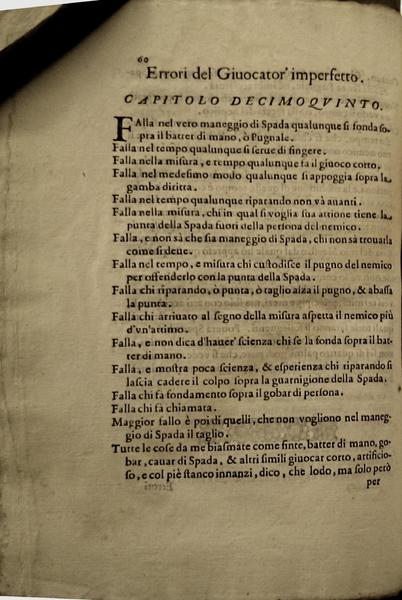 60
Errori del Giuocator' imperfetto.
CAPITOLO DECIMOQVINTO.
FAlla nel vero maneggio di Spada qualunque si fonda so-
pra il batter di mano, ò Pugnale.
Falla nel tempo qualunque si serue di fingere.
Falla nella misura, e tempo qualunque fa il giuoco corto.
Falla nel medesimo modo qualunque si appoggia sopra la
gamba diritta.
Falla nel tempo qualunque riparando non và auanti.
Falla nella misura, chi in qual si voglia sua attione tiene la
punta della Spada fuori della persona del nemico.
Falla, e non sà che sia maneggio di Spada, chi non sà trouarla
come si deue.
Falla nel tempo, e misura chi custodisce il pugno del nemico
per offenderlo con la punta della Spada.
Falla chi riparando, ò punta, ò taglio alza il pugno, & abassa
la punta.
Falla chi arriuato al segno della misura aspetta il nemico più
d'vn'attimo.
Falla, e non dica d'hauer' scienza chi se la fonda sopra il bat-
ter di mano.
Falla, e mostra poca scienza, & esperienza chi riparando si
lascia cadere il colpo sopra la guarnigione della Spada.
Falla chi fà fondamento sopra il gobar di persona.
Falla chi fà chiamata.
Maggior fallo è poi di quelli, che non vogliono nel maneg-
gio di Spada il taglio.
Tutte le cose da me biasimate come finte, batter di mano, go-
bar, cauar di Spada, & altri simili giuocar corto, artificio-
so, e col piè stanco innanzi, dico, che lodo, ma solo però
per